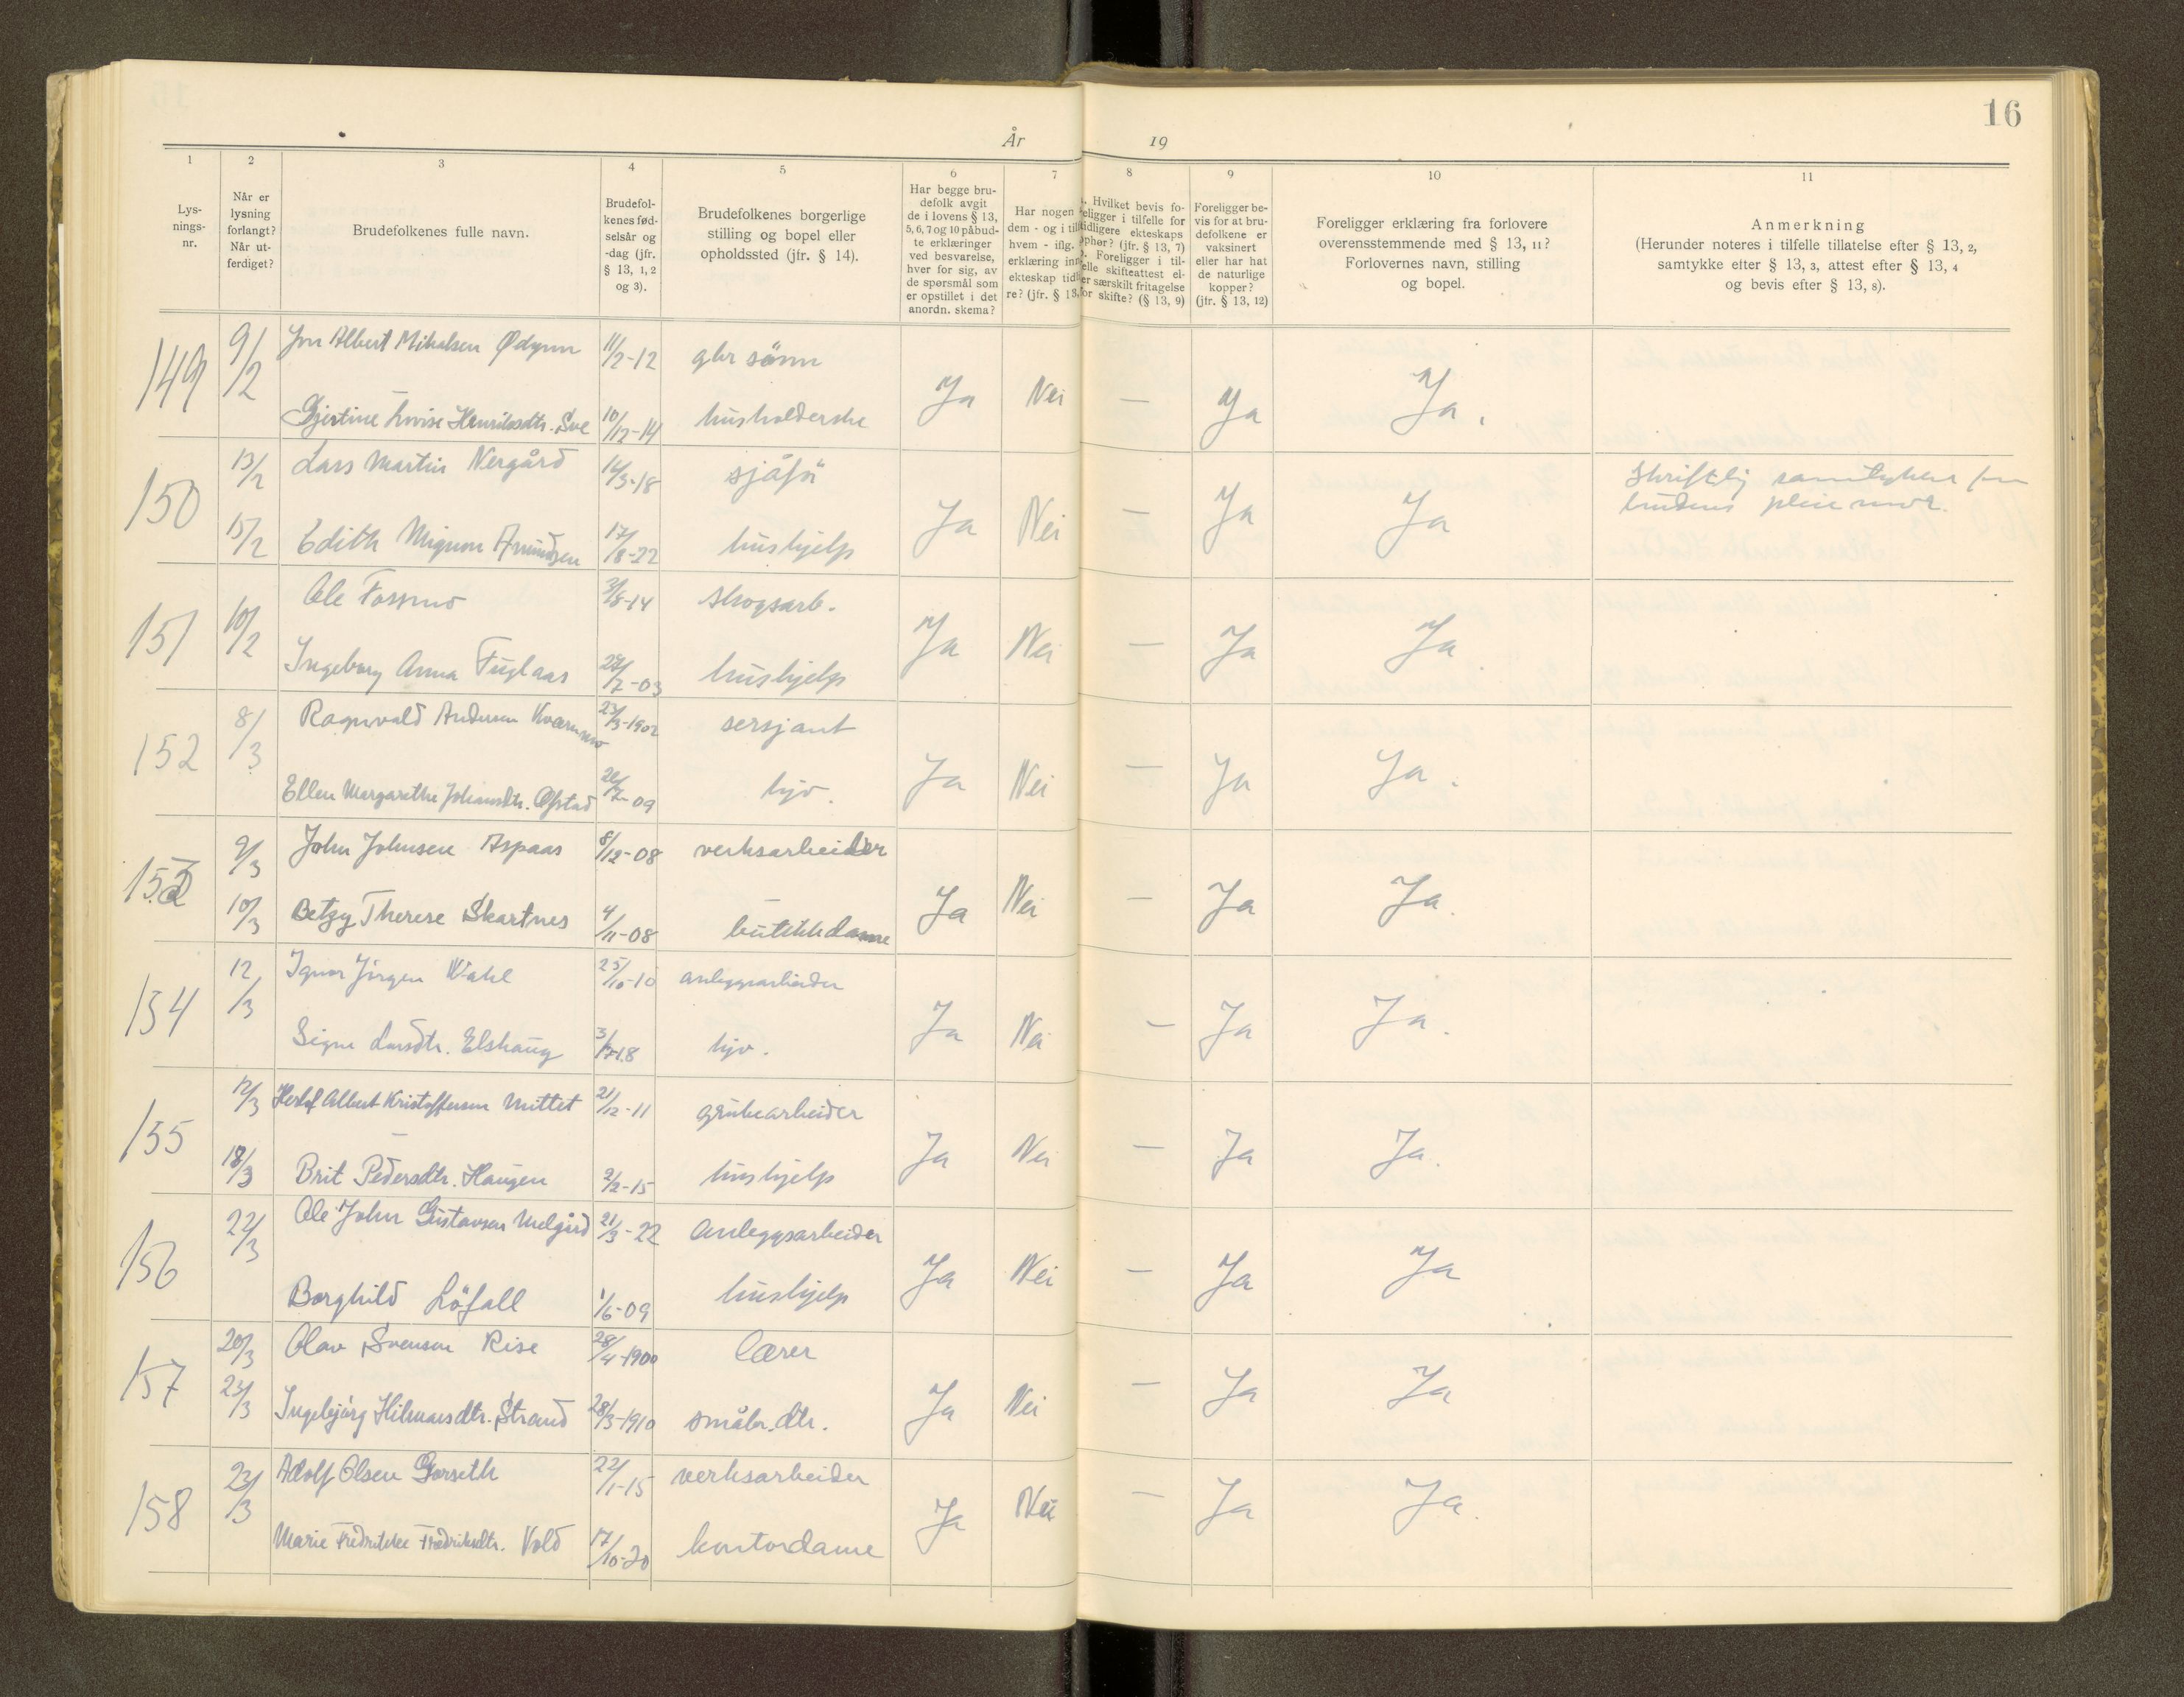 16
År 19
1 2 3 4 5 6 7 8 9 10 11
Lys-
nings-
nr.
Når er
lysning
forlangt?
Når ut-
ferdiget?
Brudefolkenes fulle navn.
Brudefol-
kenes fød-
selsår og
-dag (jfr.
§ 13, 1, 2
og 3).
Brudefolkenes borgerlige
stilling og bopel eller
opholdssted (jfr. § 14).
Har begge bru-
defolk avgit
de i lovens § 13,
5, 6, 7 og 10 påbud-
te erklæringer
ved besvarelse,
hver for sig, av
de spørsmål som
er opstillet i det
anordn. skema?
Har nogen
dem - og i tilf
hvem - iflg.
erklæring inn
ekteskap tidl
re? (jfr. § 13,
. Hvilket bevis fo-
religger i tilfelle for
tidligere ekteskaps
ophør? (jfr. § 13, 7)
. Foreligger i til-
felle skifteattest el-
er særskilt fritagelse
for skifte? (§ 13, 9)
Foreligger be-
vis for at bru-
defolkene er
vaksinert
eller har hat
de naturlige
kopper?
(jfr. § 13, 12)
Foreligger erklæring fra forlovere
overensstemmende med § 13, 11?
Forlovernes navn, stilling
og bopel.
Anmerkning
(Herunder noteres i tilfelle tillatelse efter § 13, 2,
samtykke efter § 13, 3, attest efter § 13, 4
og bevis efter § 13, 8).
149 9/2 Jon Albert Mikalsen Ødynn 11/2-12 gbr sønn
Gjertine Lovise Henriksdtr. Sve 10/12-14 husholderske Ja Nei — Ja Ja.
150 13/2 Lars Martin Nergård 14/3-18 sjåfør
15/2 Edith Mignon Amundsen 17/8-22 hushjelp Ja Nei — Ja Ja
Skriftlig samtykke fra
brudens pleiemor.
151 10/2 Ole Fossmo 3/8-14 skogsarb.
Ingeborg Anna Fuglaas /2-03 hushjelp Ja Nei — Ja Ja.
152 8/3 Ragnvald Andersen Kværnmo 23/3-1902 sersjant
Ellen Margarethe Johansdtr. Øfstad 20/2-09 hjv. Ja Nei — Ja Ja.
153 9/3 John Johnsen Aspaas 8/12-08 verksarbeider
10/3 Betzy Therese Skartnes 4/11-08 butikkdame Ja Nei — Ja Ja.
154 12/3 Jørgen Wahl 25/10-10 anleggsarbeider
Signe Larsdtr. Elshaug 3/-18 hjv. Ja Nei — Ja Ja.
155 12/3 Herlof Albert Kristoffersen Mittet 21/12-11 grubearbeider
18/3 Brit Pedersdtr. Haugen 2/2-15 hushjelp Ja Nei — Ja Ja.
156 22/3 Ole John Gustavsen Melgård 21/3-22 Anleggsarbeider
Borghild Løfall 1/6-09 hushjelp Ja Nei — Ja Ja
157 20/3 Olav Svensen Rise 28/4-1900 lærer
23/3 Ingebjørg Hilmarsdtr. Strand 28/3-1910 småbr.dtr. Ja Nei — Ja Ja
158 23/3 Adolf Olsen Gorseth 22/1-15 verksarbeider
Marie Fredrikke Fredriksdtr. Vold 17/10-20 kontordame Ja Nei — Ja Ja.